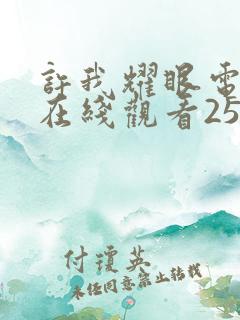 許我耀眼電
在綫觀看25
付瓊英
未經同意禁止轉載